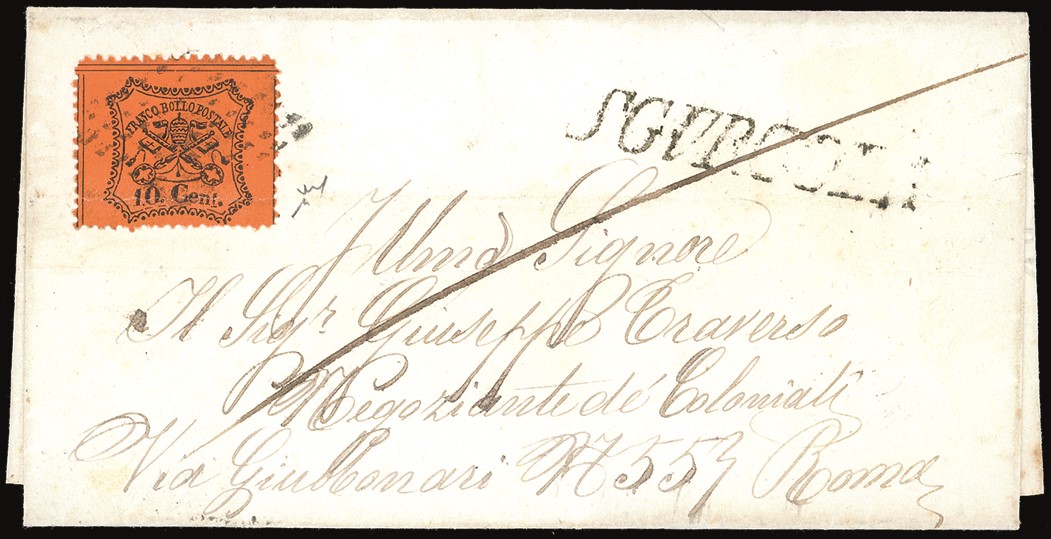 FRANCO BOLLO POSTALE
10. Cent.
SGURGOLA
Illmo Signore
Il Sigr Giuseppe Traverso
Negoziante dé Coloniali
Via Giubbonari N 55 Roma